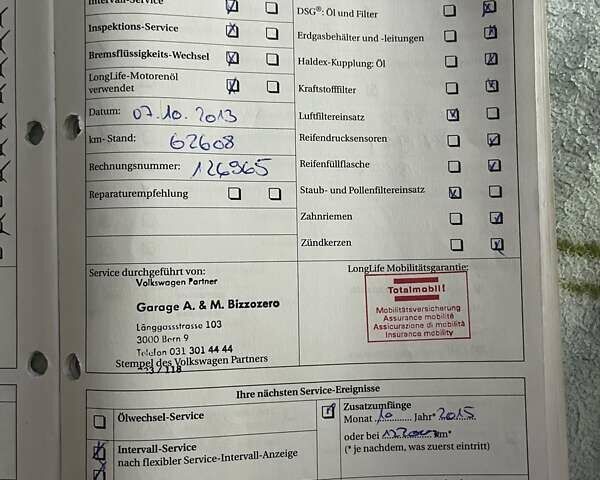 Intervall-Service
Inspektions-Service
Bremsflüssigkeits-Wechsel
LongLife-Motorenöl
verwendet
Datum: 07.10.2013
km-Stand: 62608
Rechnungsnummer: 126965
Reparaturempfehlung
DSG®: Öl und Filter
Erdgasbehälter und -leitungen
Haldex-Kupplung: Öl
Kraftstofffilter
Luftfiltereinsatz
Reifendrucksensoren
Reifenfüllflasche
Staub- und Pollenfiltereinsatz
Zahnriemen
Zündkerzen
Service durchgeführt von:
Volkswagen Partner
Garage A. & M. Bizzozero
Länggassstrasse 103
3000 Bern 9
Telefon 031 301 44 44
Stempel des Volkswagen Partners
LongLife Mobilitätsgarantie:
Totalmobil!
Mobilitätsversicherung
Assurance mobilité
Assicurazione di mobilità
Insurance mobility
Ihre nächsten Service-Ereignisse
Ölwechsel-Service
Intervall-Service
nach flexibler Service-Intervall-Anzeige
Zusatzumfänge
Monat 10 Jahr* 2015
oder bei km*
(* je nachdem, was zuerst eintritt)